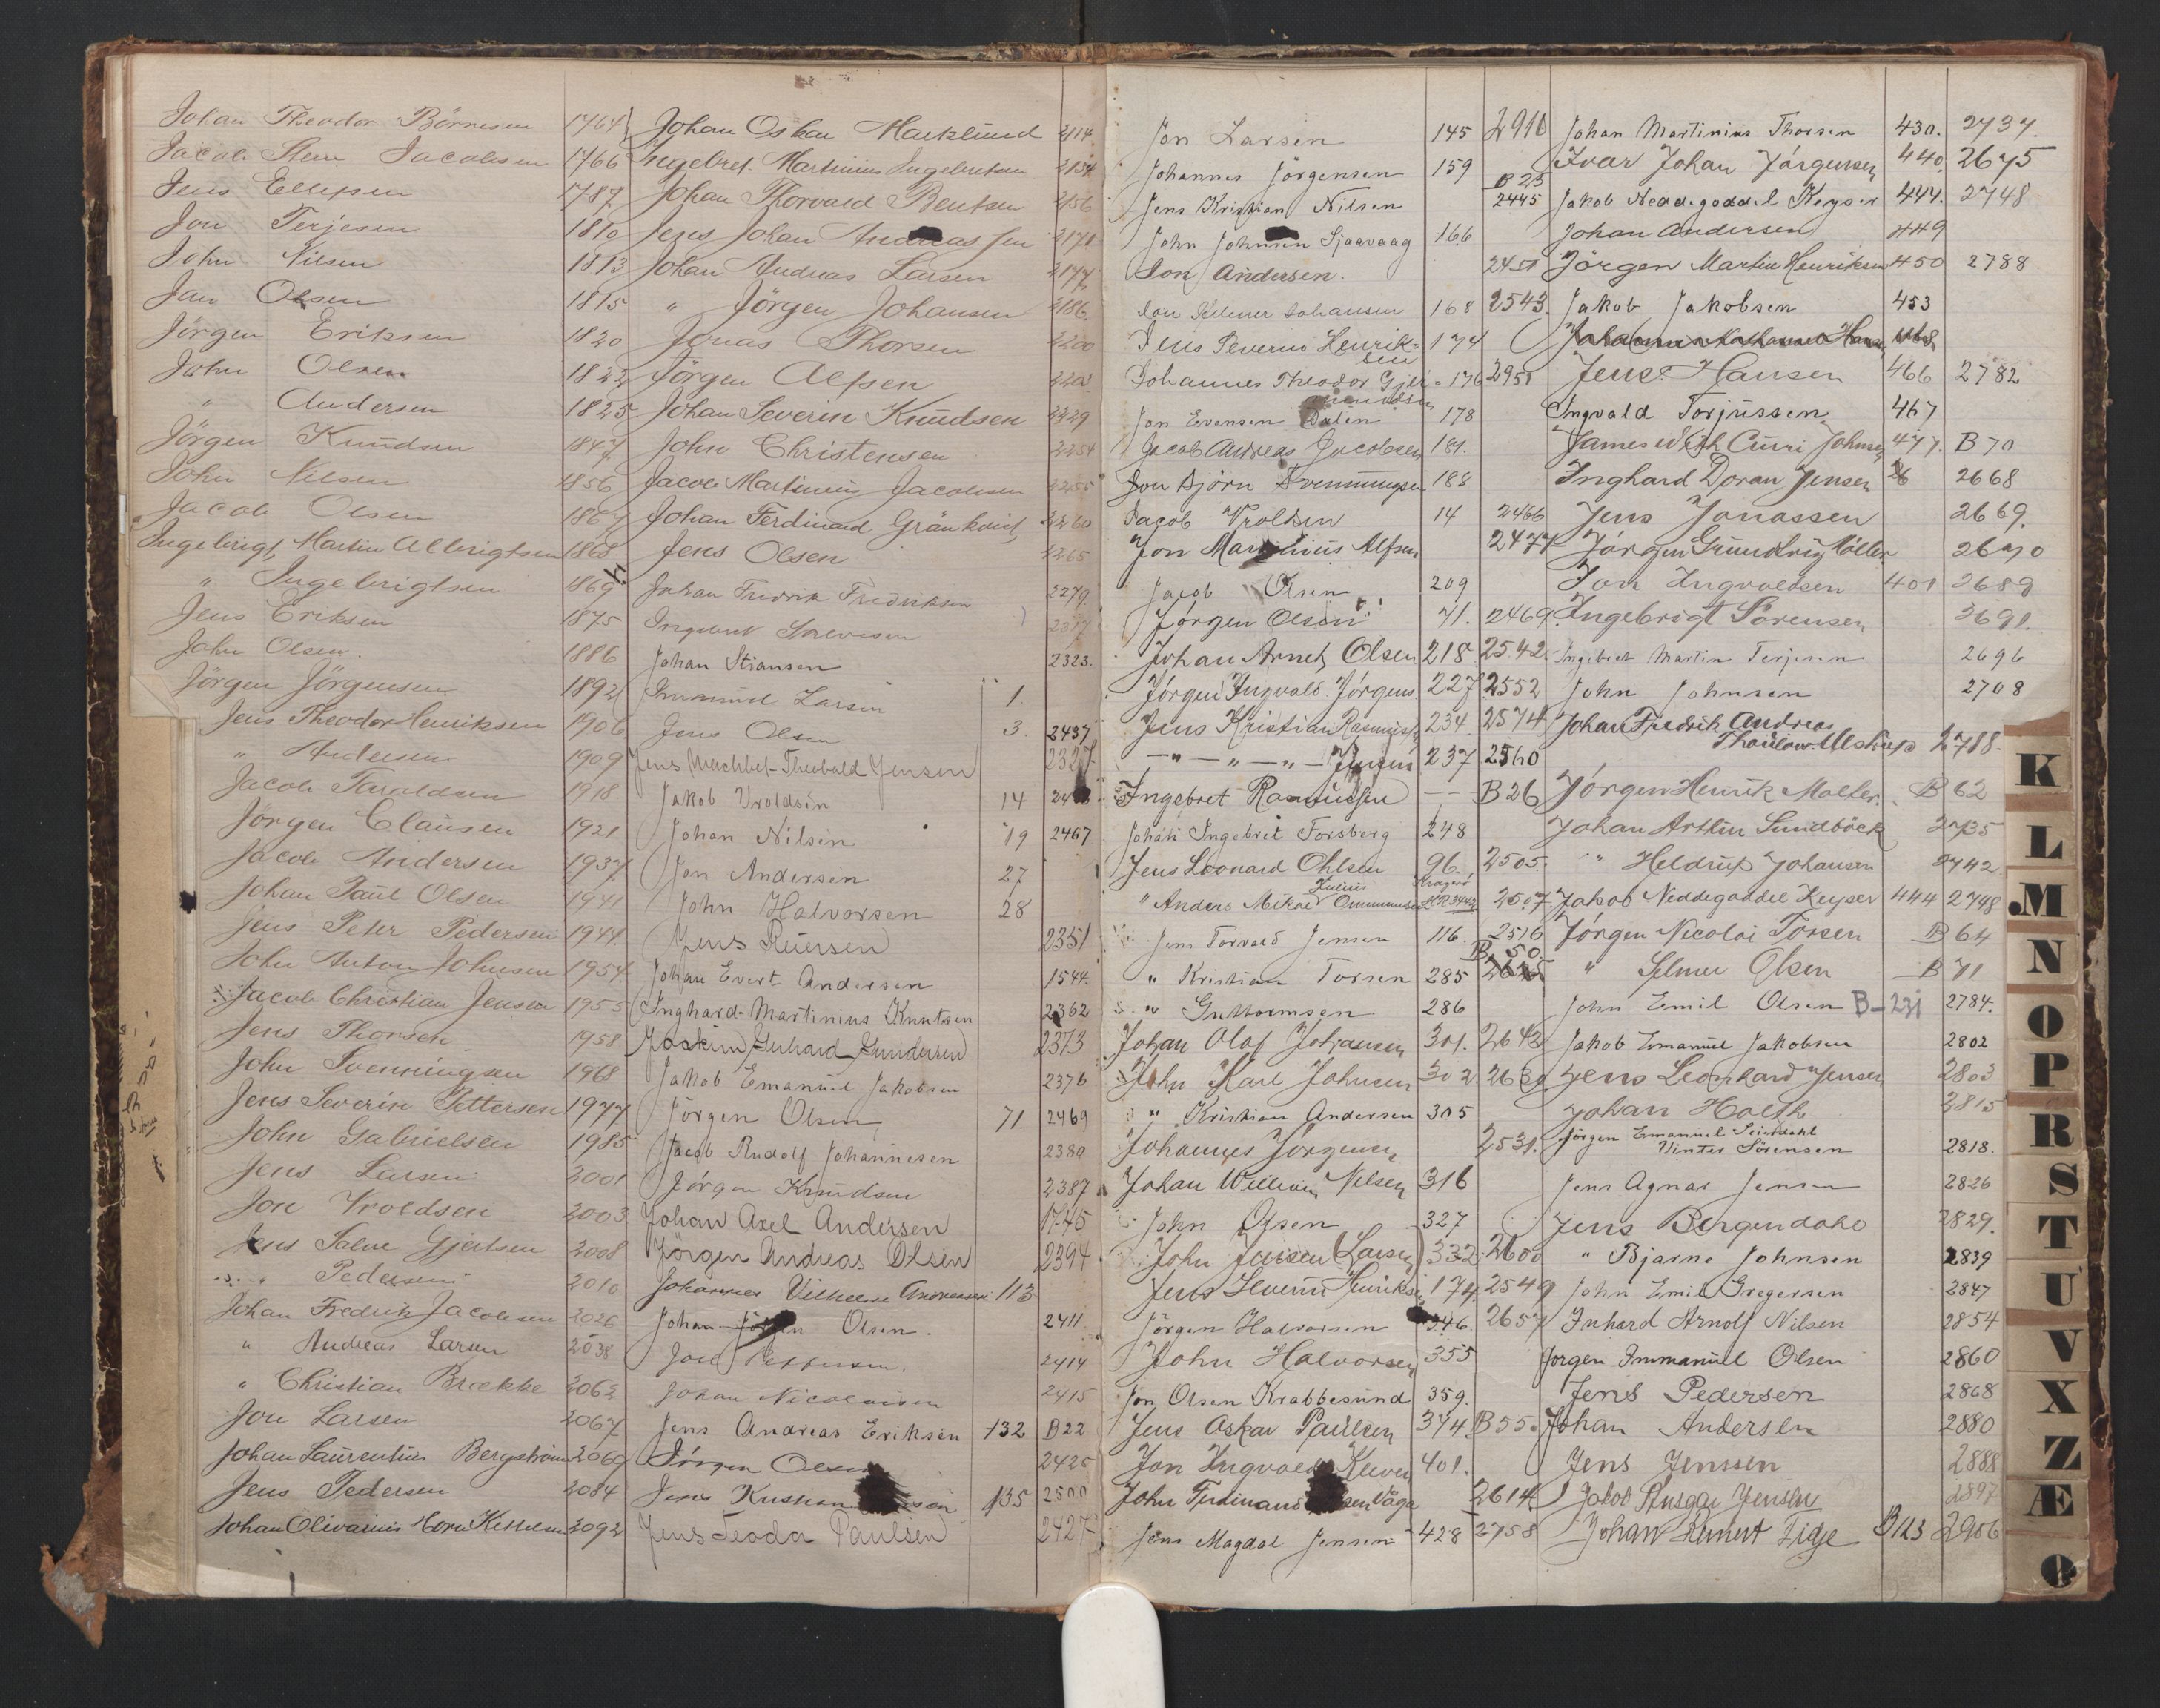 Johan Theodor Börresen 1764
Jacob Steen Jacobsen 1766
Jens Ellefsen 1787
Jon Terjesen 1810
John Nilsen 1813
Jan Olsen 1815
Jörgen Eriksen 1820
John Olsen 1822
" Andersen 1825
Jörgen Knudsen 1847
John Nilsen 1856
Jacob Olsen 1867
Ingebrigt Martin Albrigtsen 1868
" Ingebrigtsen 1869
Jens Eriksen 1875
John Olsen. 1886
Jörgen Jörgensen 1892
Jens Theodor Henriksen 1906
" Andersen 1909
Jacob Taraldsen 1918
Jörgen Clausen 1921
Jacob Andersen 1937
Johan Paul Olsen 1941
Jens Peter Pedersen 1944
John Anton Johnsen 1954
Jacob Christian Jensen 1955
Jens Thorsen 1958
John Svenningsen 1968
Jens Severin Pettersen 1977
John Gabrielsen 1985
Jens Larsen 2001
Jon Vroldsen 2003
Jens Salve Gjertsen 2008
" Pedersen 2010
Johan Fredrik Jacobsen 2026
" Andreas Larsen 2038
" Christian Brække 2062
Jon Larsen 2067
Johan Laurentius Bergström 2069
Jens Pedersen 2084
Johan Olivarius Horn Kittelsen 2092
Johan Oskar Marklund 2114
Ingebret Martinius Ingebretsen 2154
Johan Thorvald Bentsen 2156
Jens Johan Andreassen 2171
Johan Andreas Larsen 2177
" Jörgen Johansen 2186
Jonas Thorsen 2200
Jörgen Alfsen
Johan Severin Knudsen 2229
John Christensen 2254
Jacob Martinius Jacobsen 2255
Johan Ferdinand Gränkvist 2260
Jens Olsen 2265
Johan Fredrik Fredriksen 2279
Ingebret
Johan Stiansen 2323.
Larsen 1.
Jens Olsen 3. 2437
Jens Theobald Jensen 2327
Jakob Vroldsen 14
Johan Nilsen 19 2467
Jon Andersen 27
John Halvorsen 28
Jens Reiersen 2351
Johan Evert Andersen 1544.
Inghard Martinius Knutsen 2362
Joakim Gerhard Gundersen 2373
Jakob Emanuel Jakobsen 2376
Jörgen Olsen 71. 2469
Jacob Rudolf Johannesen 2380
Jörgen Knudsen 2387
Johan Axel Andersen 1745
Jörgen Andreas Olsen 2394
Johannes Vilhelm Andreassen 113
Johan Jörgen Olsen. 2411.
Pettersen. 2414
Johan Nicolaisen 2415
Jens Andreas Eriksen 132 B22
Jörgen Olsen 2425
Jens Kristian 135 2500
Jens Teodor Paulsen 2427
Jon Larsen 145 2910
Johannes Jörgensen 159
Jens Kristian Nilsen B 25 2445
John Johnsen Sjaavaag 166
Jon Andersen. 2451
Johansen 168 2543.
Jens Severin Henriksen 174
Johannes Theodor 176 2951
Jon Evensen Dalen 178
Jacob Andreas Jacobsen 181.
Jon Björn Svenningsen 188
Jacob Vroldsen 14 2466
Jon Martinius Alfsen 2477
Jacob Olsen 209
Jörgen Olsen 71. 2469.
Johan Arnt Olsen 218 2542
Jörgen Ingvald Jörgens 227 2552
Jens Kristian Rasmussen 234. 2574
— " — " — Jensen 237 2560
Ingebret Rasmussen — B26
Johan Ingebret Forsberg 248
Jens Leonard Ohlsen 96. 2505.
" Anders Mikael Julius 2507.
Jens Torvald Jensen 116. 2516
" Kristian Torsen 285 B. 50
" Guttormsen 286
Johan Olaf Johansen 301. 2642
John Karl Johnsen 302. 2630
" Kristian Andersen 305
Johannes Jörgensen 2531.
Johan William Nilsen 316
John Olsen 327
John Jensen (Larsen) 332 2600
Jens Severin Henriksen 174. 2549
Jörgen Halvorsen 346. 2657
John Halvorsen 355
Jon Olsen Krabbesund 359.
Jens Oskar Paulsen 374. B55.
Jon Ingvald 401.
John Ferdinand 2614
Jens Magdal Jensen 428 2758
Johan Martinius Thorsen 430. 2737.
Ivar Johan Jörgensen 440. 2675
Jakob Neddegaddel Keyser 444. 2748
Johan Andersen 449
Jörgen Martin Henriksen 450 2788
Jakob Jakobsen 453
Jens Hansen 466 2782
Ingvald Torjussen 467
James Johnsen 477. B 70
Inghard Doran Jensen 2668
Jens Jonassen 2669.
Jörgen Möller 2670
Jon Ingvaldsen 401 2689
Ingebrigt Sörensen 2691.
Ingebret Martin Terjesen 2696
John Johnsen 2708
Johan Fredrik Andreas
Thaulow Ulstrup 2718.
Jörgen Henrik Møller. B 62
Johan Arthur Sundböck 2735
" Heldrup Johansen 2742
Jakob Neddegaddel Keyser 444 2748
Jörgen Nicolai Torsen B 64
" Selmer Olsen B 71
John Emil Olsen 2784.
Jakob Emanuel Jakobsen 2802
Jens Leonhard Jensen 2803
Johan Holth 2815
Jörgen Emanuel Seierdahl
Winter Sörensen 2818.
Jens Agnar Jensen 2826
Jens Bergendahl 2829.
" Bjarne Johnsen 2839
John Emil Gregersen 2847
Inhard Arnolf Nilsen 2854
Jorgen Immanuel Olsen 2860
Jens Pedersen 2868
Johan Andersen 2880
Jens Jenssen 2888
Jakob Jensen 2897
Johan Fidje B123 2906
K
L
M
N
O
P
R
S
T
U
V
X
Z
Æ
Ø